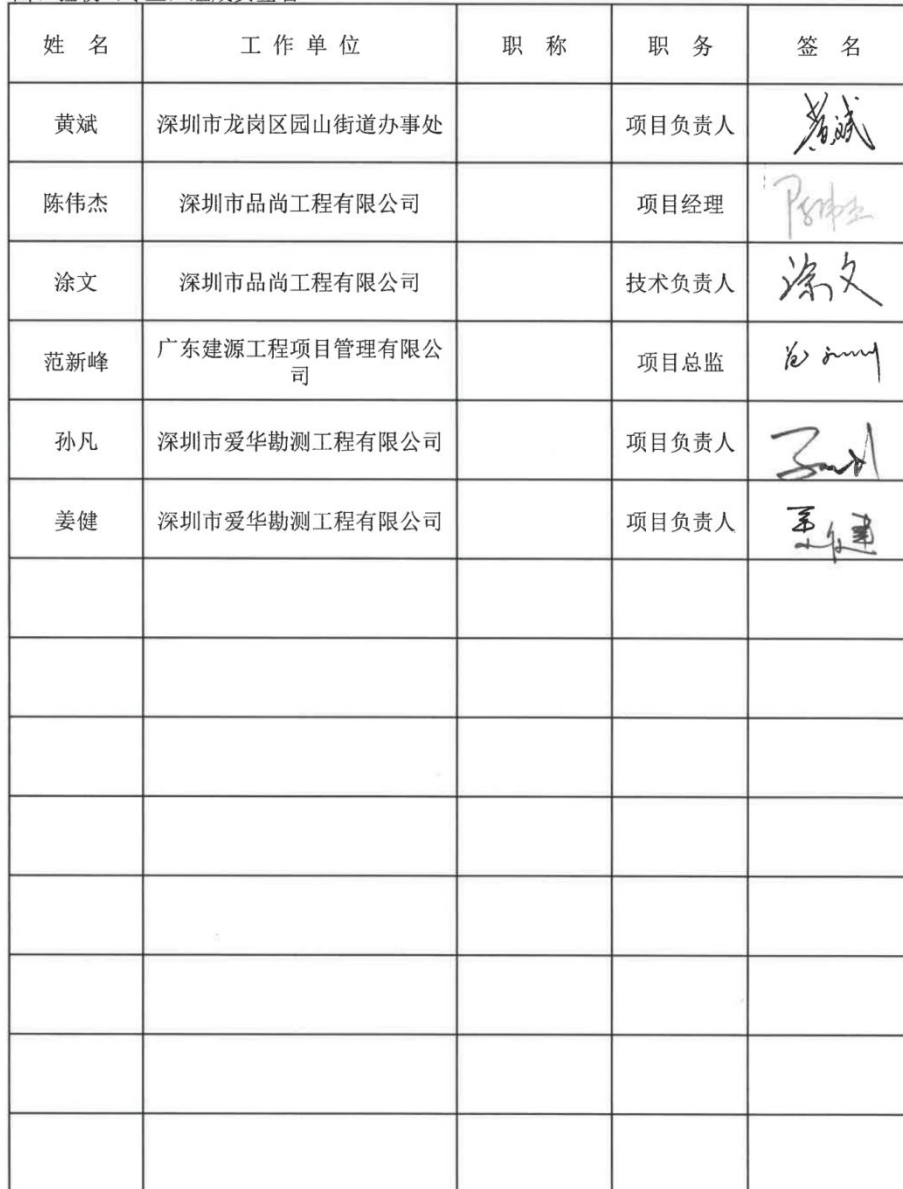 姓 名 工 作 单 位 职 称 职 务 签 名
黄斌 深圳市龙岗区园山街道办事处 项目负责人 黄斌
陈伟杰 深圳市品尚工程有限公司 项目经理 陈伟杰
涂文 深圳市品尚工程有限公司 技术负责人 涂文
范新峰 广东建源工程项目管理有限公
司 项目总监
孙凡 深圳市爱华勘测工程有限公司 项目负责人
姜健 深圳市爱华勘测工程有限公司 项目负责人